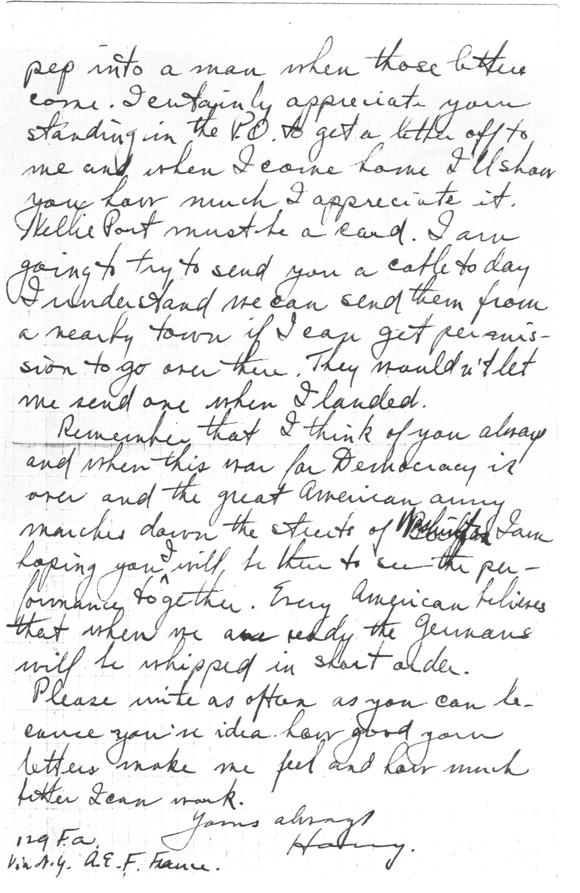 pep into a man when those letters
come. I certainly appreciate your
standing in the P.O. to get a letter off to
me and when I come home I'll show
you how much I appreciate it.
Nellie Post must be a card. I am
going to try to send you a cable today
I understand we can send them from
a nearby town if I can get permis-
sion to go over there. They wouldn't let
me send one when I landed.
Remember that I think of you always
and when this war for Democracy is
over and the great American army
marches down the streets of I am
hoping you & I will be there to see the per-
formance together. Every American believes
that when we are ready the Germans
will be whipped in short order.
Please write as often as you can be-
cause you've idea how good your
letters make me feel and how much
better I can work.
Yours always
Harry.
129 F.A.
Via N.Y. A.E.F. France.